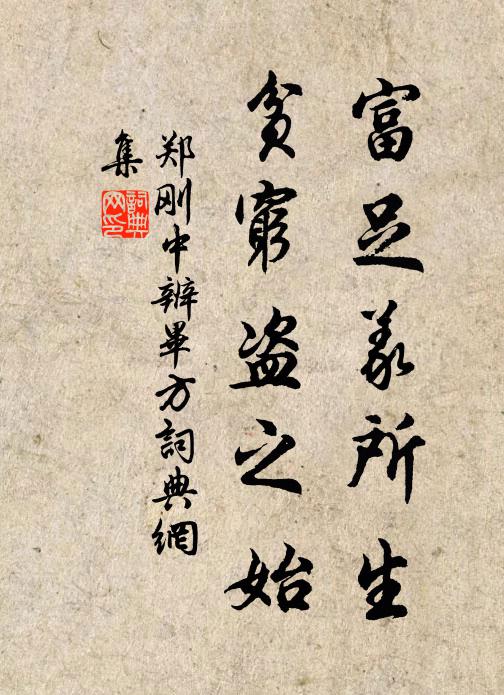 富足义所生
贫穷盗之始
郑刚中辨毕方詞典網
集
詞典网印